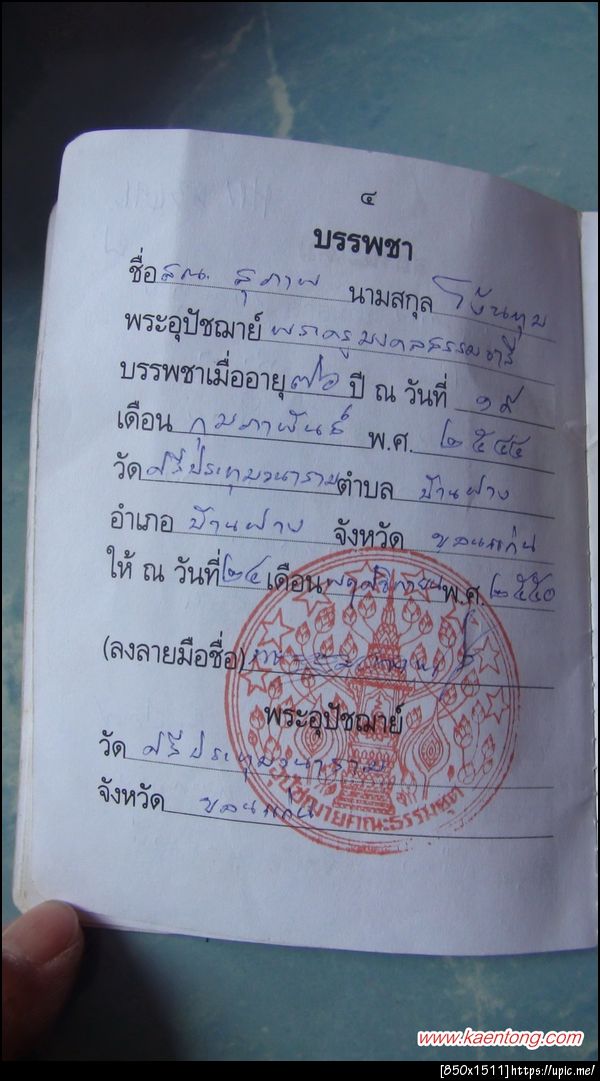 ๔
บรรพชา
ชื่อ สณ. สุภาพ นามสกุล
พระอุปัชฌาย์ พระครูมงคลธรรมจารี
บรรพชาเมื่ออายุ ๗๖ ปี ณ วันที่ ๑๙
เดือน กุมภาพันธ์ พ.ศ. ๒๕๔๔
วัด ศรีประทุมวนาราม ตำบล บ้านฝาง
อำเภอ บ้านฝาง จังหวัด ขอนแก่น
ให้ ณ วันที่ ๒๔ เดือน พฤศจิกายน พ.ศ. ๒๕๕๐
(ลงลายมือชื่อ)
พระอุปัชฌาย์
วัด ศรีประทุมวนาราม
จังหวัด ขอนแก่น
อุปัชฌาย์คณะธรรมยุต
www.kaentong.com
[850x1511]https://upic.me/